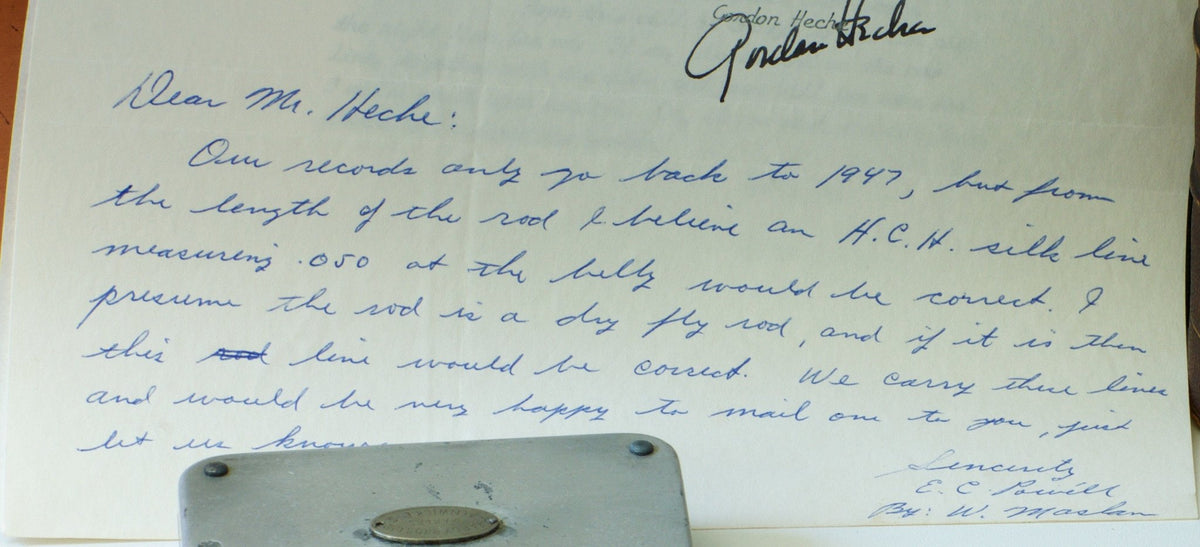 Gordon Heche
Gordon Heche
Dear Mr. Heche:
Our records only go back to 1947, but from
the length of the rod I believe an H.C.H. silk line
measuring .050 at the belly would be correct. I
presume the rod is a dry fly rod, and if it is then
this rod line would be correct. We carry these lines
and would be very happy to mail one to you, just
let us know
Sincerely
E. C Powell
By: W. Maslan